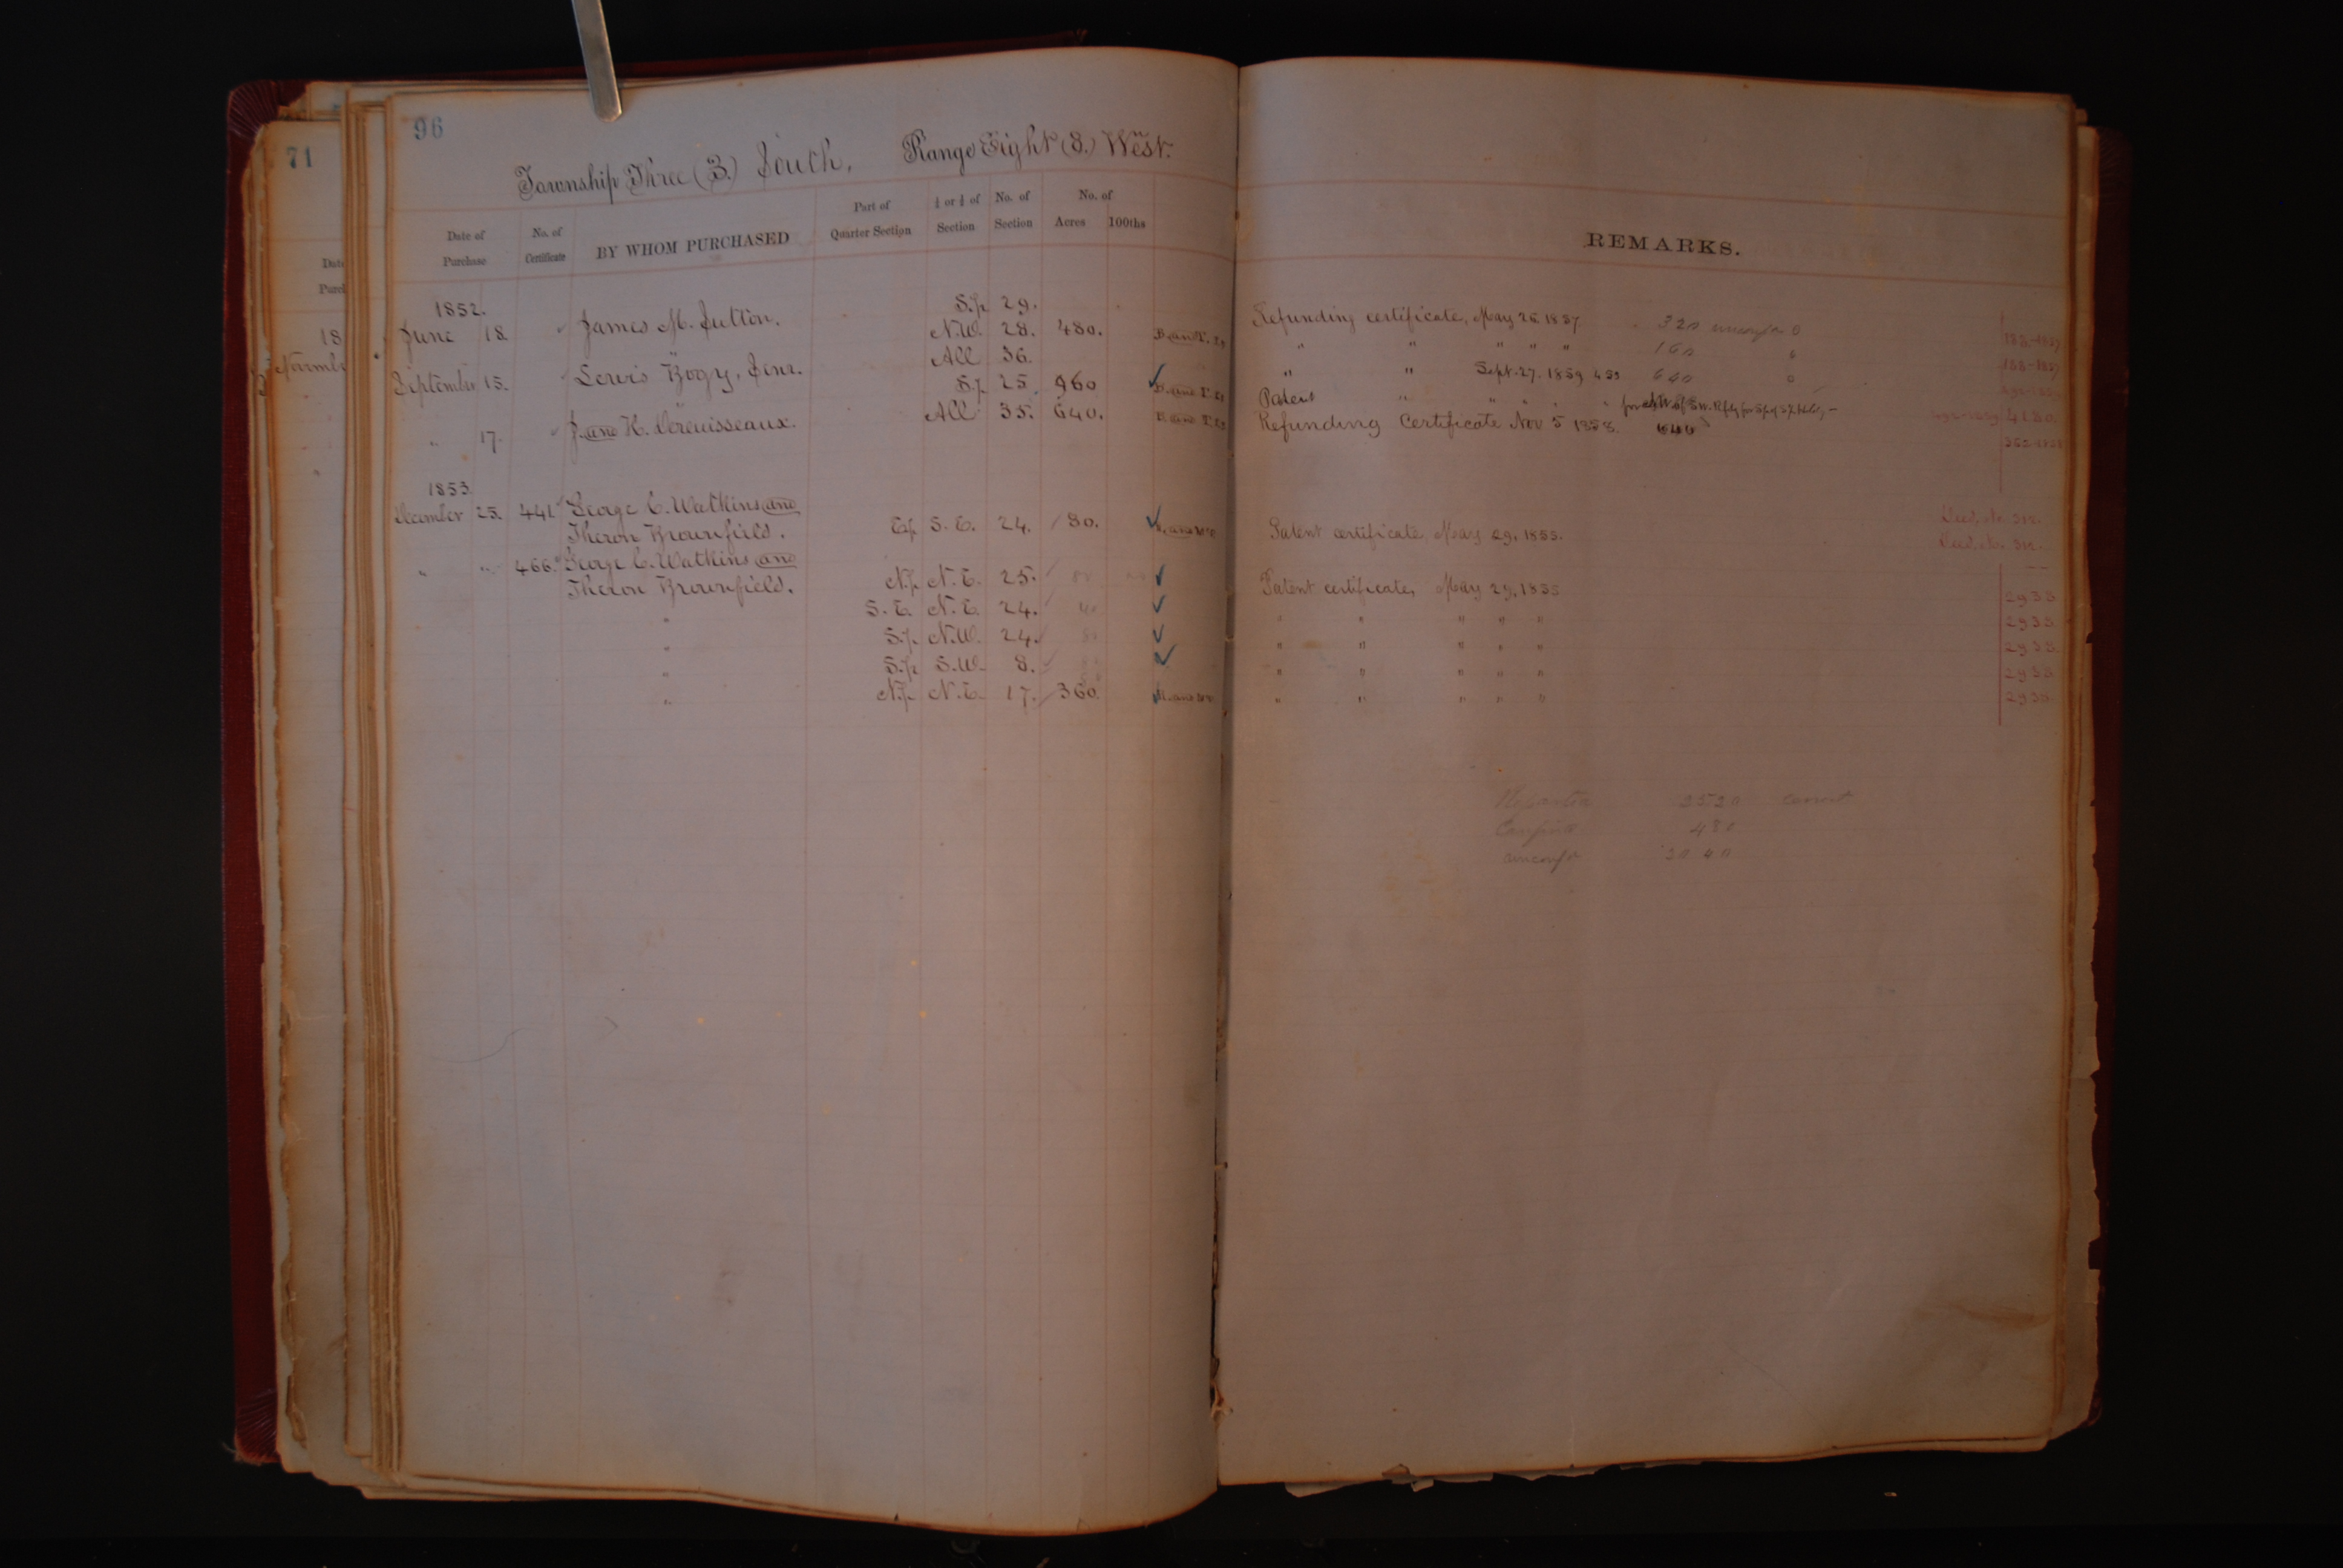 96
71
Township Three (3.) South, Range Eight (8.) West.
Date of Purchase No. of Certificate BY WHOM PURCHASED Part of Quarter Section ¼ or ½ of Section No. of Section No. of Acres 100ths
REMARKS.
1852. S.½ 29. Refunding certificate, May 26. 1857. 320
June 18. James M. Sutton. N.W. 28. 480. " " " " " 160
All 36. " " Sept. 27. 1859 640
September 15. Lewis Bogy, Senr. S.½ 25. 960 Patent "
" 17. J. and H. All 35. 640. Refunding Certificate Nov 5 1858. 640
4180.
1853
December 25. 441 George C. Watkins and
Theron Brownfield. E½ S.E. 24. 80. Patent certificate May 29, 1855. Deed. No. 312.
" " 466. George C. Watkins and
Theron Brownfield. N.½ N.E. 25. 80 Patent certificate, May 29, 1855 2938
" S.E. N.E. 24. 40 " " " " " 2938
" S.½ N.W. 24. 80 " " " " " 2938
" S.½ S.W. 8. " " " " " 2938
" N.½ N.E. 17. 360. " " " " " 2938
2520 correct
480
2040